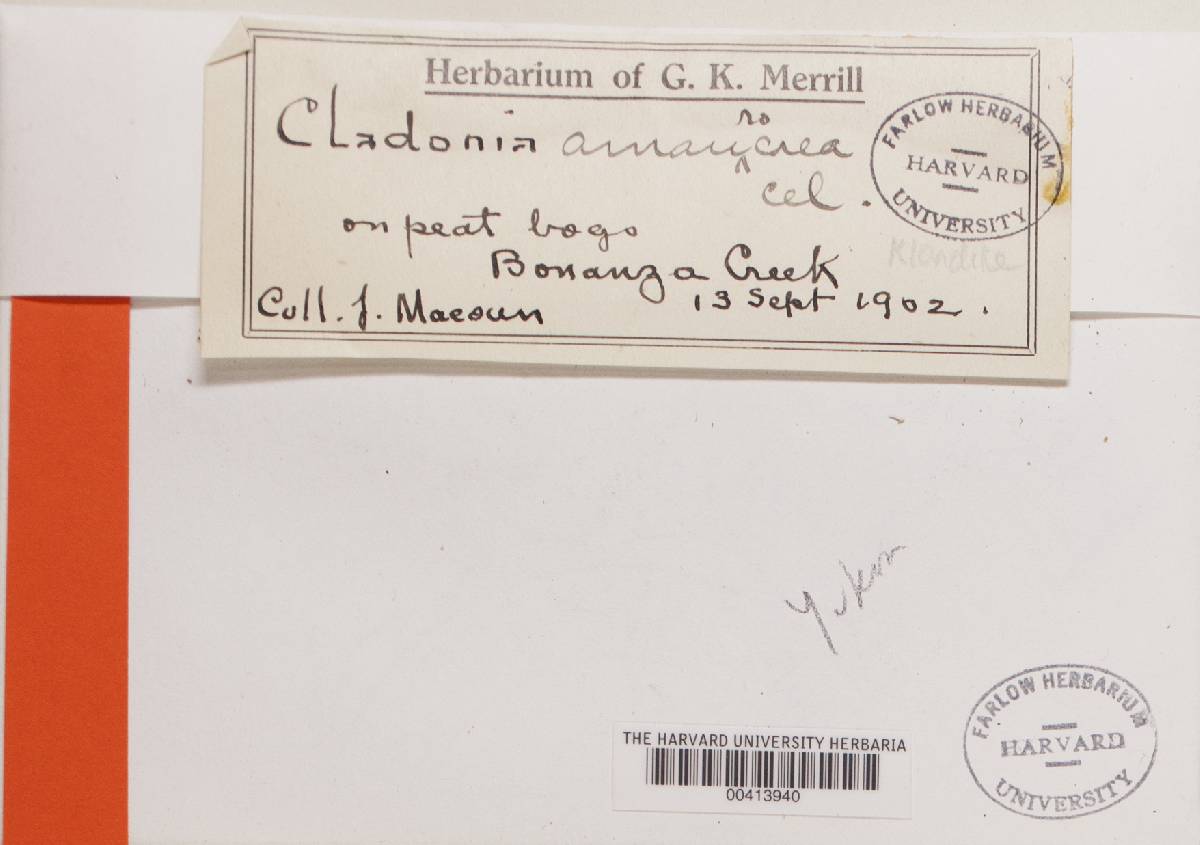 Herbarium of G. K. Merrill
Cladonia amaurocrea
cel.
on peat bogs
Bonanza Creek
Klondike
Coll. J. Macoun 13 Sept 1902.
FARLOW HERBARIUM
HARVARD
UNIVERSITY
Yukon
THE HARVARD UNIVERSITY HERBARIA
00413940
FARLOW HERBARIUM
HARVARD
UNIVERSITY